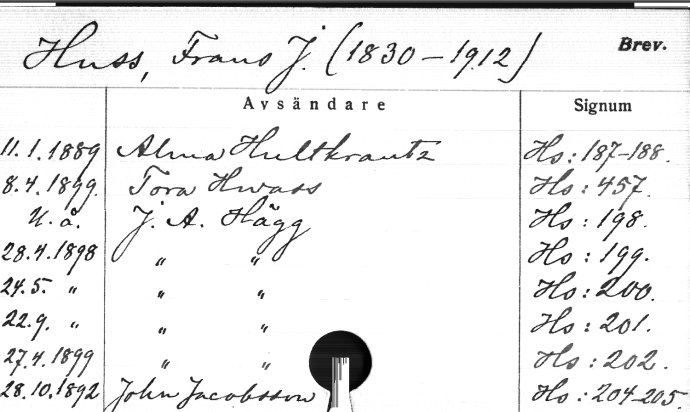 Huss, Frans J. (1830–1912) Brev.
Avsändare Signum
11.1.1889 Alma Hultkrantz Hs: 187-188.
8.4.1899. Tora Hwass Hs: 457.
U. å. J. A. Hägg Hs: 198.
28.4.1898 " " Hs: 199.
24.5. " " " Hs: 200.
22.9. " " " Hs: 201.
27.4.1899 " " Hs: 202.
28.10.1892 John Jacobsson Hs.: 204-205.